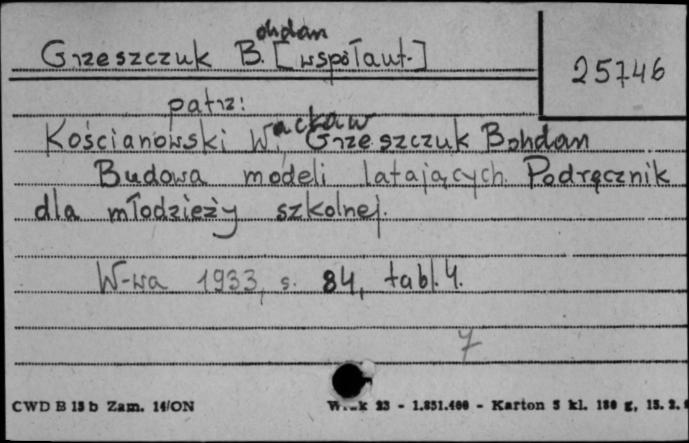 Grzeszczuk B.ohdan [współaut.]
25746
patrz:
Kościanowski W.acław Grzeszczuk Bohdan
Budowa modeli latających. Podręcznik
dla młodzieży szkolnej.
W-wa 1933, s. 84, tabl. 4.
7
CWD B 15 b Zam. 14/ON
23 - 1.851.400 - Karton 5 kl. 180 g, 15. 2.